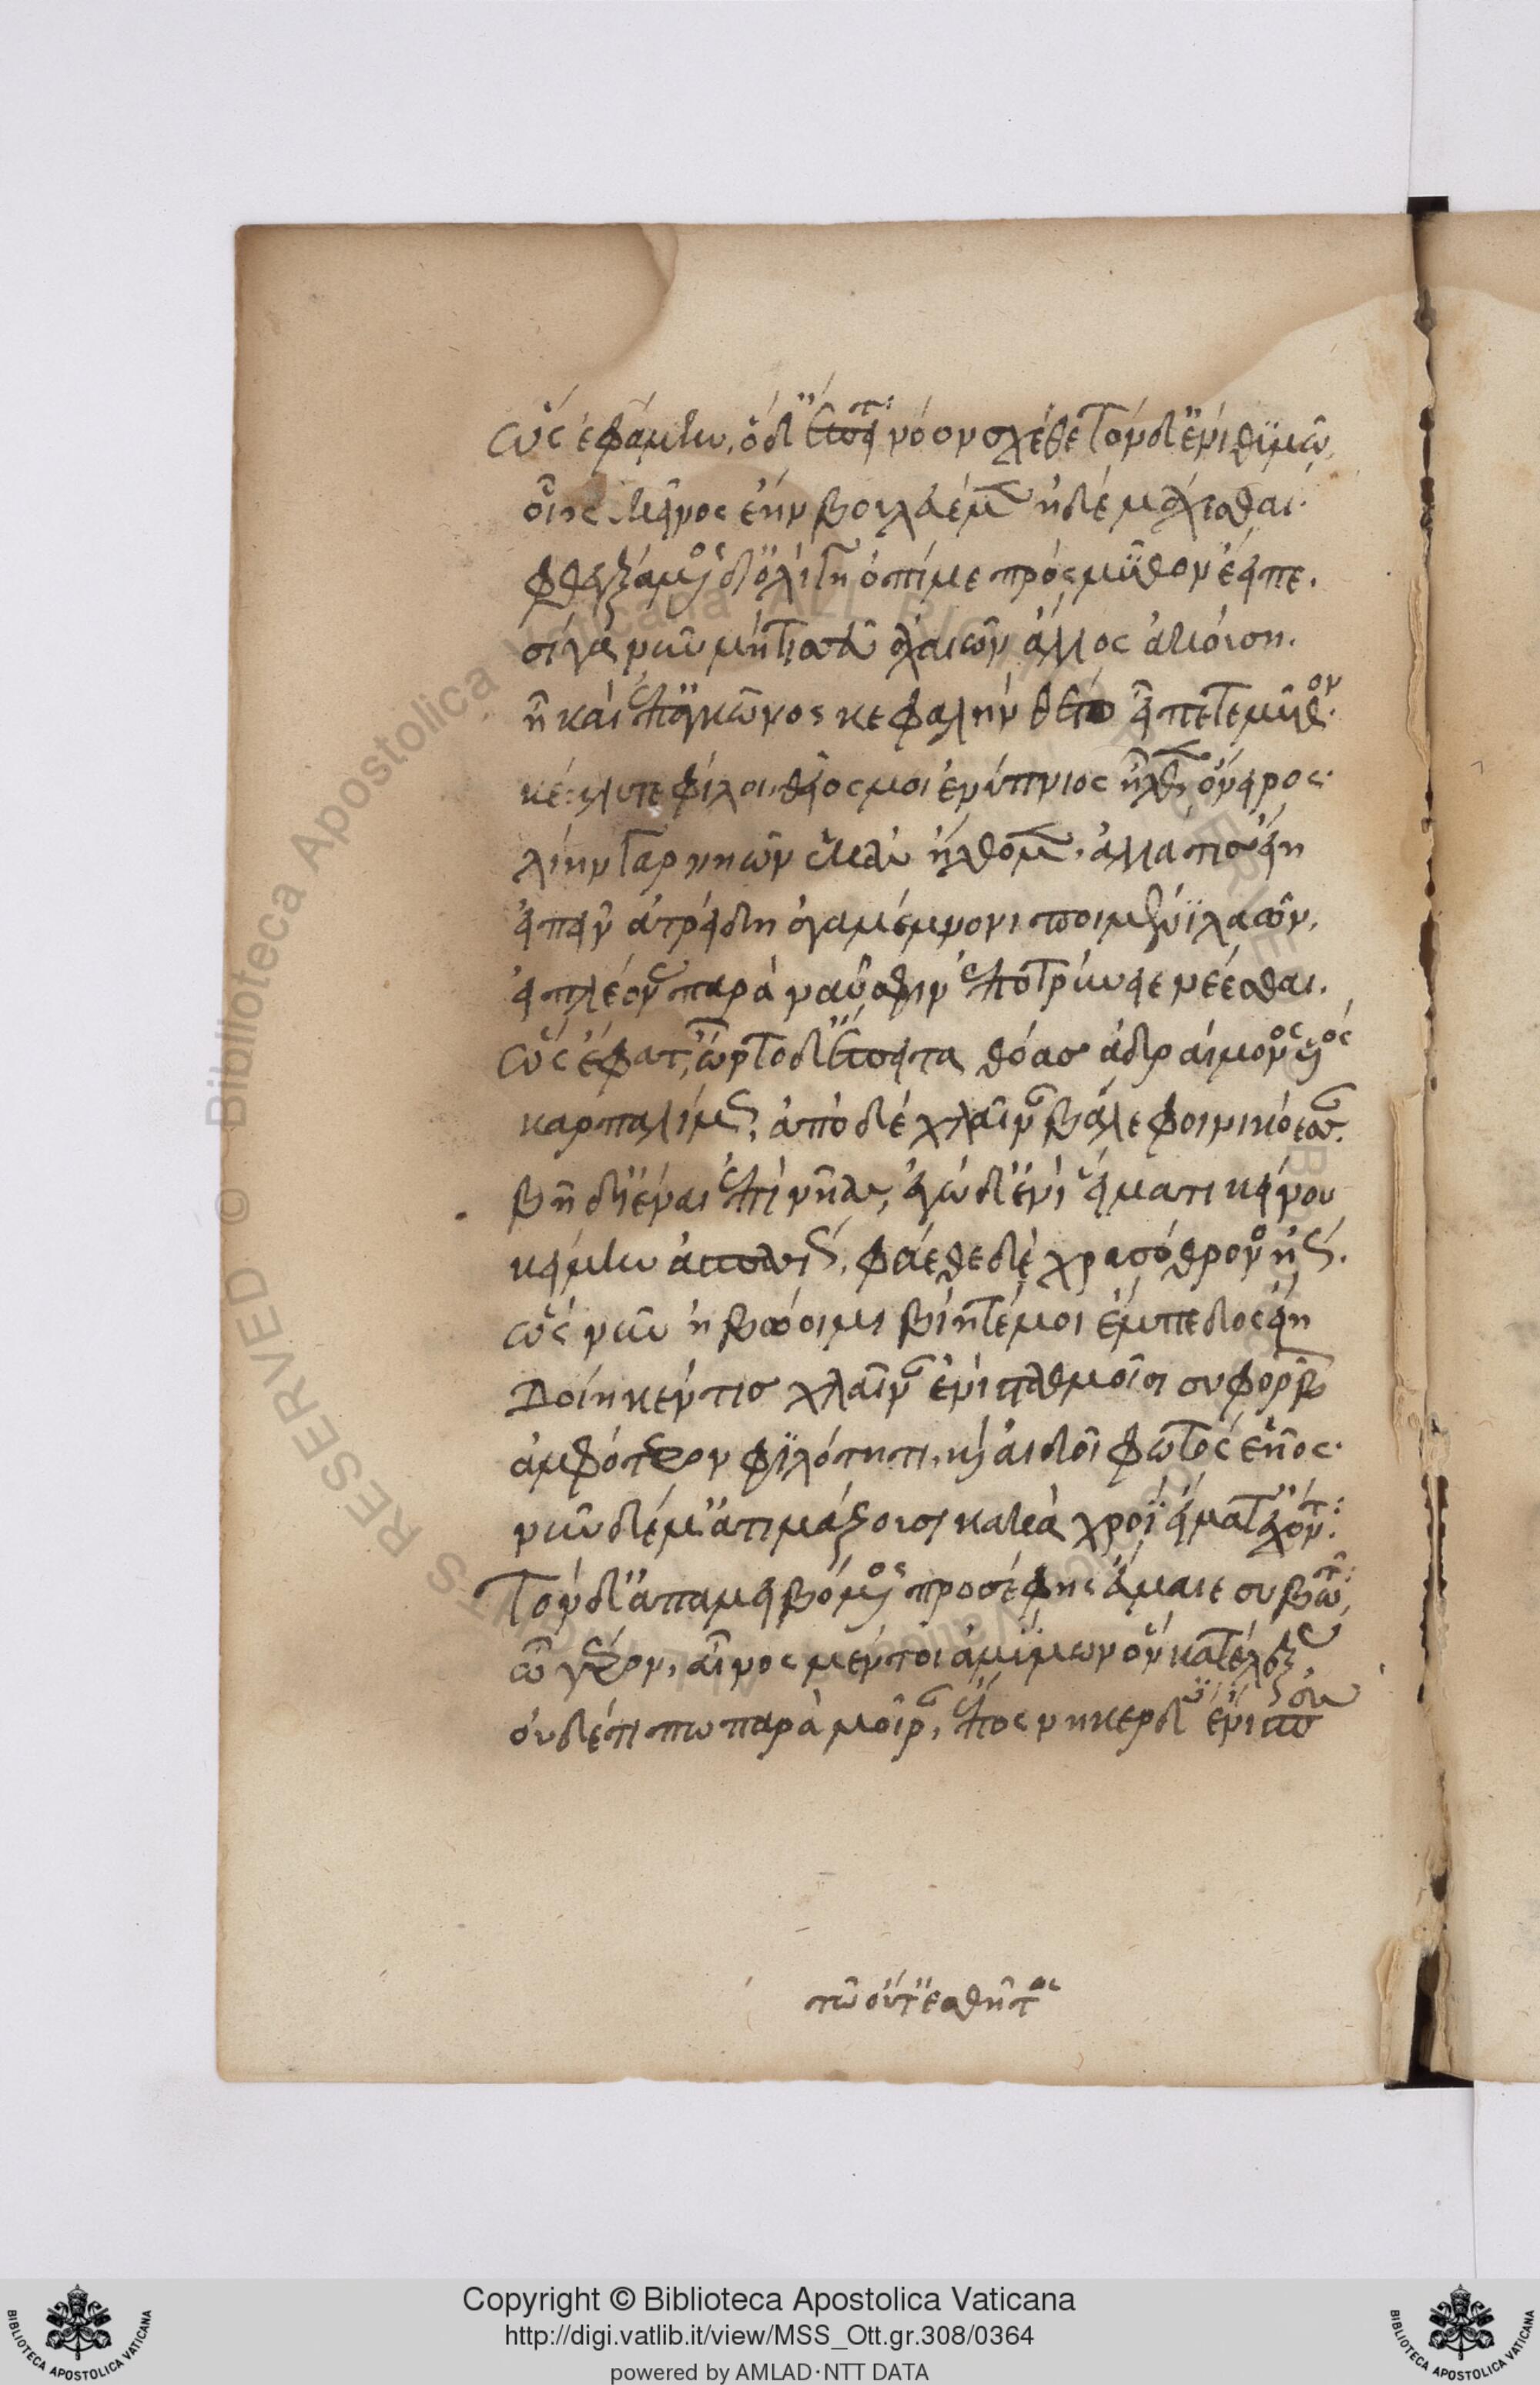 ὣς ἐφάμην, ὁ δ' ἔπειτα νόον σχέθε τόνδ' ἐνὶ θυμῷ,
οἷος ἐκεῖνος ἔην βουλευέμεν ἠδὲ μάχεσθαι.
φθεγξάμενος δ' ὀλίγῃ ὀπί με πρὸς μῦθον ἔειπε.
σίγα νῦν μή τίς σευ ἀχαιῶν ἄλλος ἀκούσῃ.
ἦ καὶ ἐπ' ἀγκῶνος κεφαλὴν θέτο εἶπέ τε μῦθον.
κέκλυτε φίλοι, θεῖός μοι ἐνύπνιος ἦλθεν ὄνειρος.
λίην γὰρ νηῶν ἑκὰς ἤλθομεν. ἀλλά τις εἴη
εἰπεῖν ἀτρείδῃ ἀγαμέμνονι ποιμένι λαῶν,
εἰ πλέονας παρὰ ναῦφιν ἐποτρύνειε νέεσθαι.
ὣς ἔφατ', ὦρτο δ' ἔπειτα θόας ἀνδραίμονος υἱός
καρπαλίμως, ἀπὸ δὲ χλαῖναν βάλε φοινικόεσσαν.
βῆ δ' ἰέναι ἐπὶ νῆας, ἐγὼ δ' ἐνὶ εἵματι κείνου
κείμην ἀσπασίως, φάε δὲ χρυσόθρονος ἠώς.
ὣς νῦν ἡβώοιμι βίη τέ μοι ἔμπεδος εἴη
Δοίη κέν τις χλαῖναν ἐνὶ σταθμοῖσι συφορβῶν
ἀμφότερον φιλότητι, καὶ αἰδοῖ φωτὸς ἑῆος.
νῦν δέ μ' ἀτιμάζουσι κακὰ χροῒ εἵματ' ἔχοντα:
Τὸν δ' ἀπαμειβόμενος προσέφης εὔμαιε συβῶτα,
ὦ γέρον, αἶνος μέν τοι ἀμύμων ὃν κατέλεξας,
οὐδέ τί πω παρὰ μοῖραν, ἔπος νηκερδὲς ἔνισπες
τῷ οὔτ' ἐσθῆτος
Copyright © Biblioteca Apostolica Vaticana
http://digi.vatlib.it/view/MSS_Ott.gr.308/0364
powered by AMLAD·NTT DATA